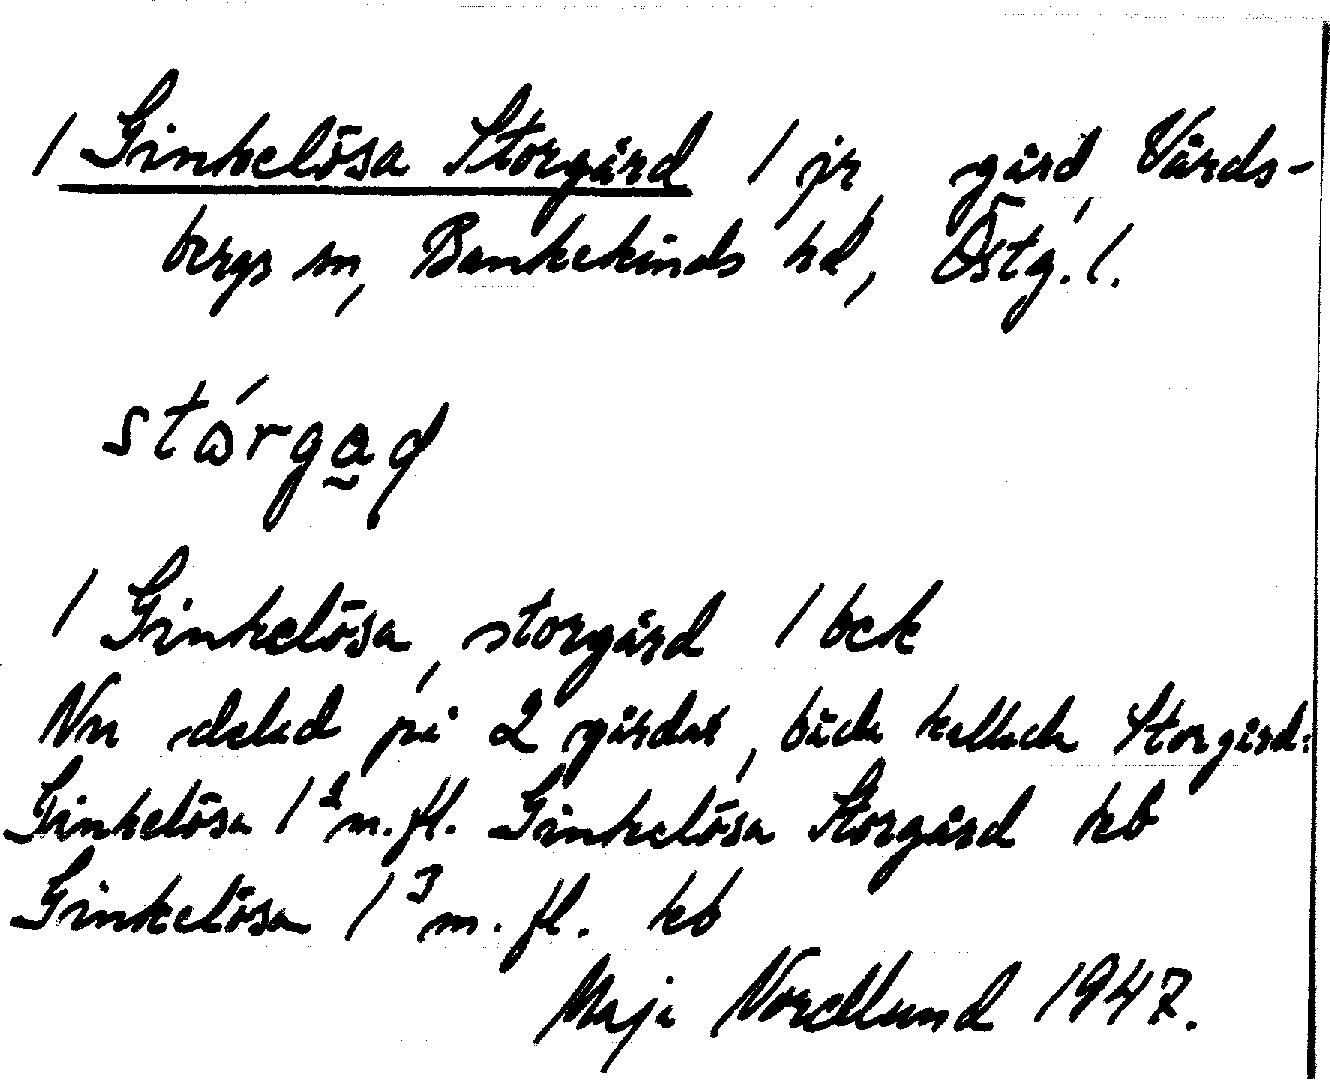 / Ginkelösa Storgård / jr, gård, Vårds-
bergs sn, Bankekinds hd, Östg. l.
stórga̰d
/ Ginkelösa, storgård / bek
Nu delad på 2 gårdar, båda kallade Storgård:
Ginkelösa 1² m. fl. Ginkelösa Storgård kb
Ginkelösa 1³ m. fl. kb
Maja Nordlund 1947.